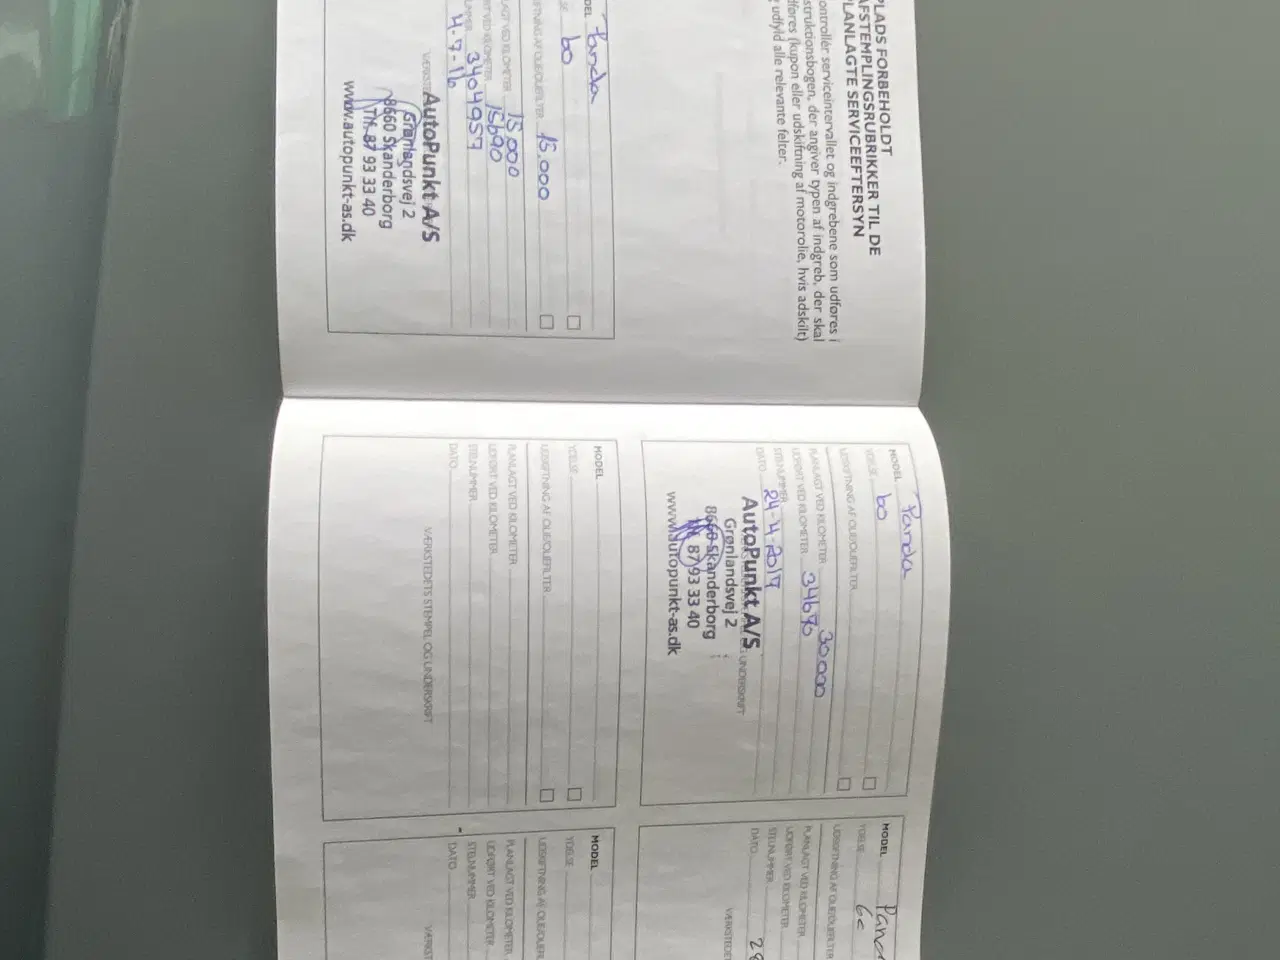 PLADS FORBEHOLDT
AFSTEMPLINGSRUBRIKKER TIL DE
PLANLAGTE SERVICEEFTERSYN
serviceintervallet og indgrebene som udføres i
der angiver typen af indgreb, der skal
(kupon eller udskiftning af motorolie, hvis adskilt)
udfyld alle relevante felter.
MODEL Panda
60
15.000
VED KILOMETER 15.000
VED KILOMETER 15690
3404957
4-7-16
AutoPunkt A/S
Grønlandsvej 2
8660 Skanderborg
Tlf. 87 93 33 40
www.autopunkt-as.dk
MODEL Panda
YDELSE 60
UDSKIFTNING AF OLIE/OLIEFILTER
PLANLAGT VED KILOMETER 30.000
UDFØRT VED KILOMETER 34690
STELNUMMER
DATO 24-4-2017
AutoPunkt A/S
Grønlandsvej 2
8660 Skanderborg
87 93 33 40
www.autopunkt-as.dk
MODEL
YDELSE
UDSKIFTNING AF OLIE/OLIEFILTER
PLANLAGT VED KILOMETER
UDFØRT VED KILOMETER
STELNUMMER
DATO
VÆRKSTEDETS STEMPEL OG UNDERSKRIFT
MODEL
YDELSE
UDSKIFTNING AF OLIE/OLIEFILTER
PLANLAGT VED KILOMETER
UDFØRT VED KILOMETER
STELNUMMER
DATO 28
MODEL
YDELSE
UDSKIFTNING AF
PLANLAGT VED KILOMETER
UDFØRT VED KILOMETER
STELNUMMER
DATO